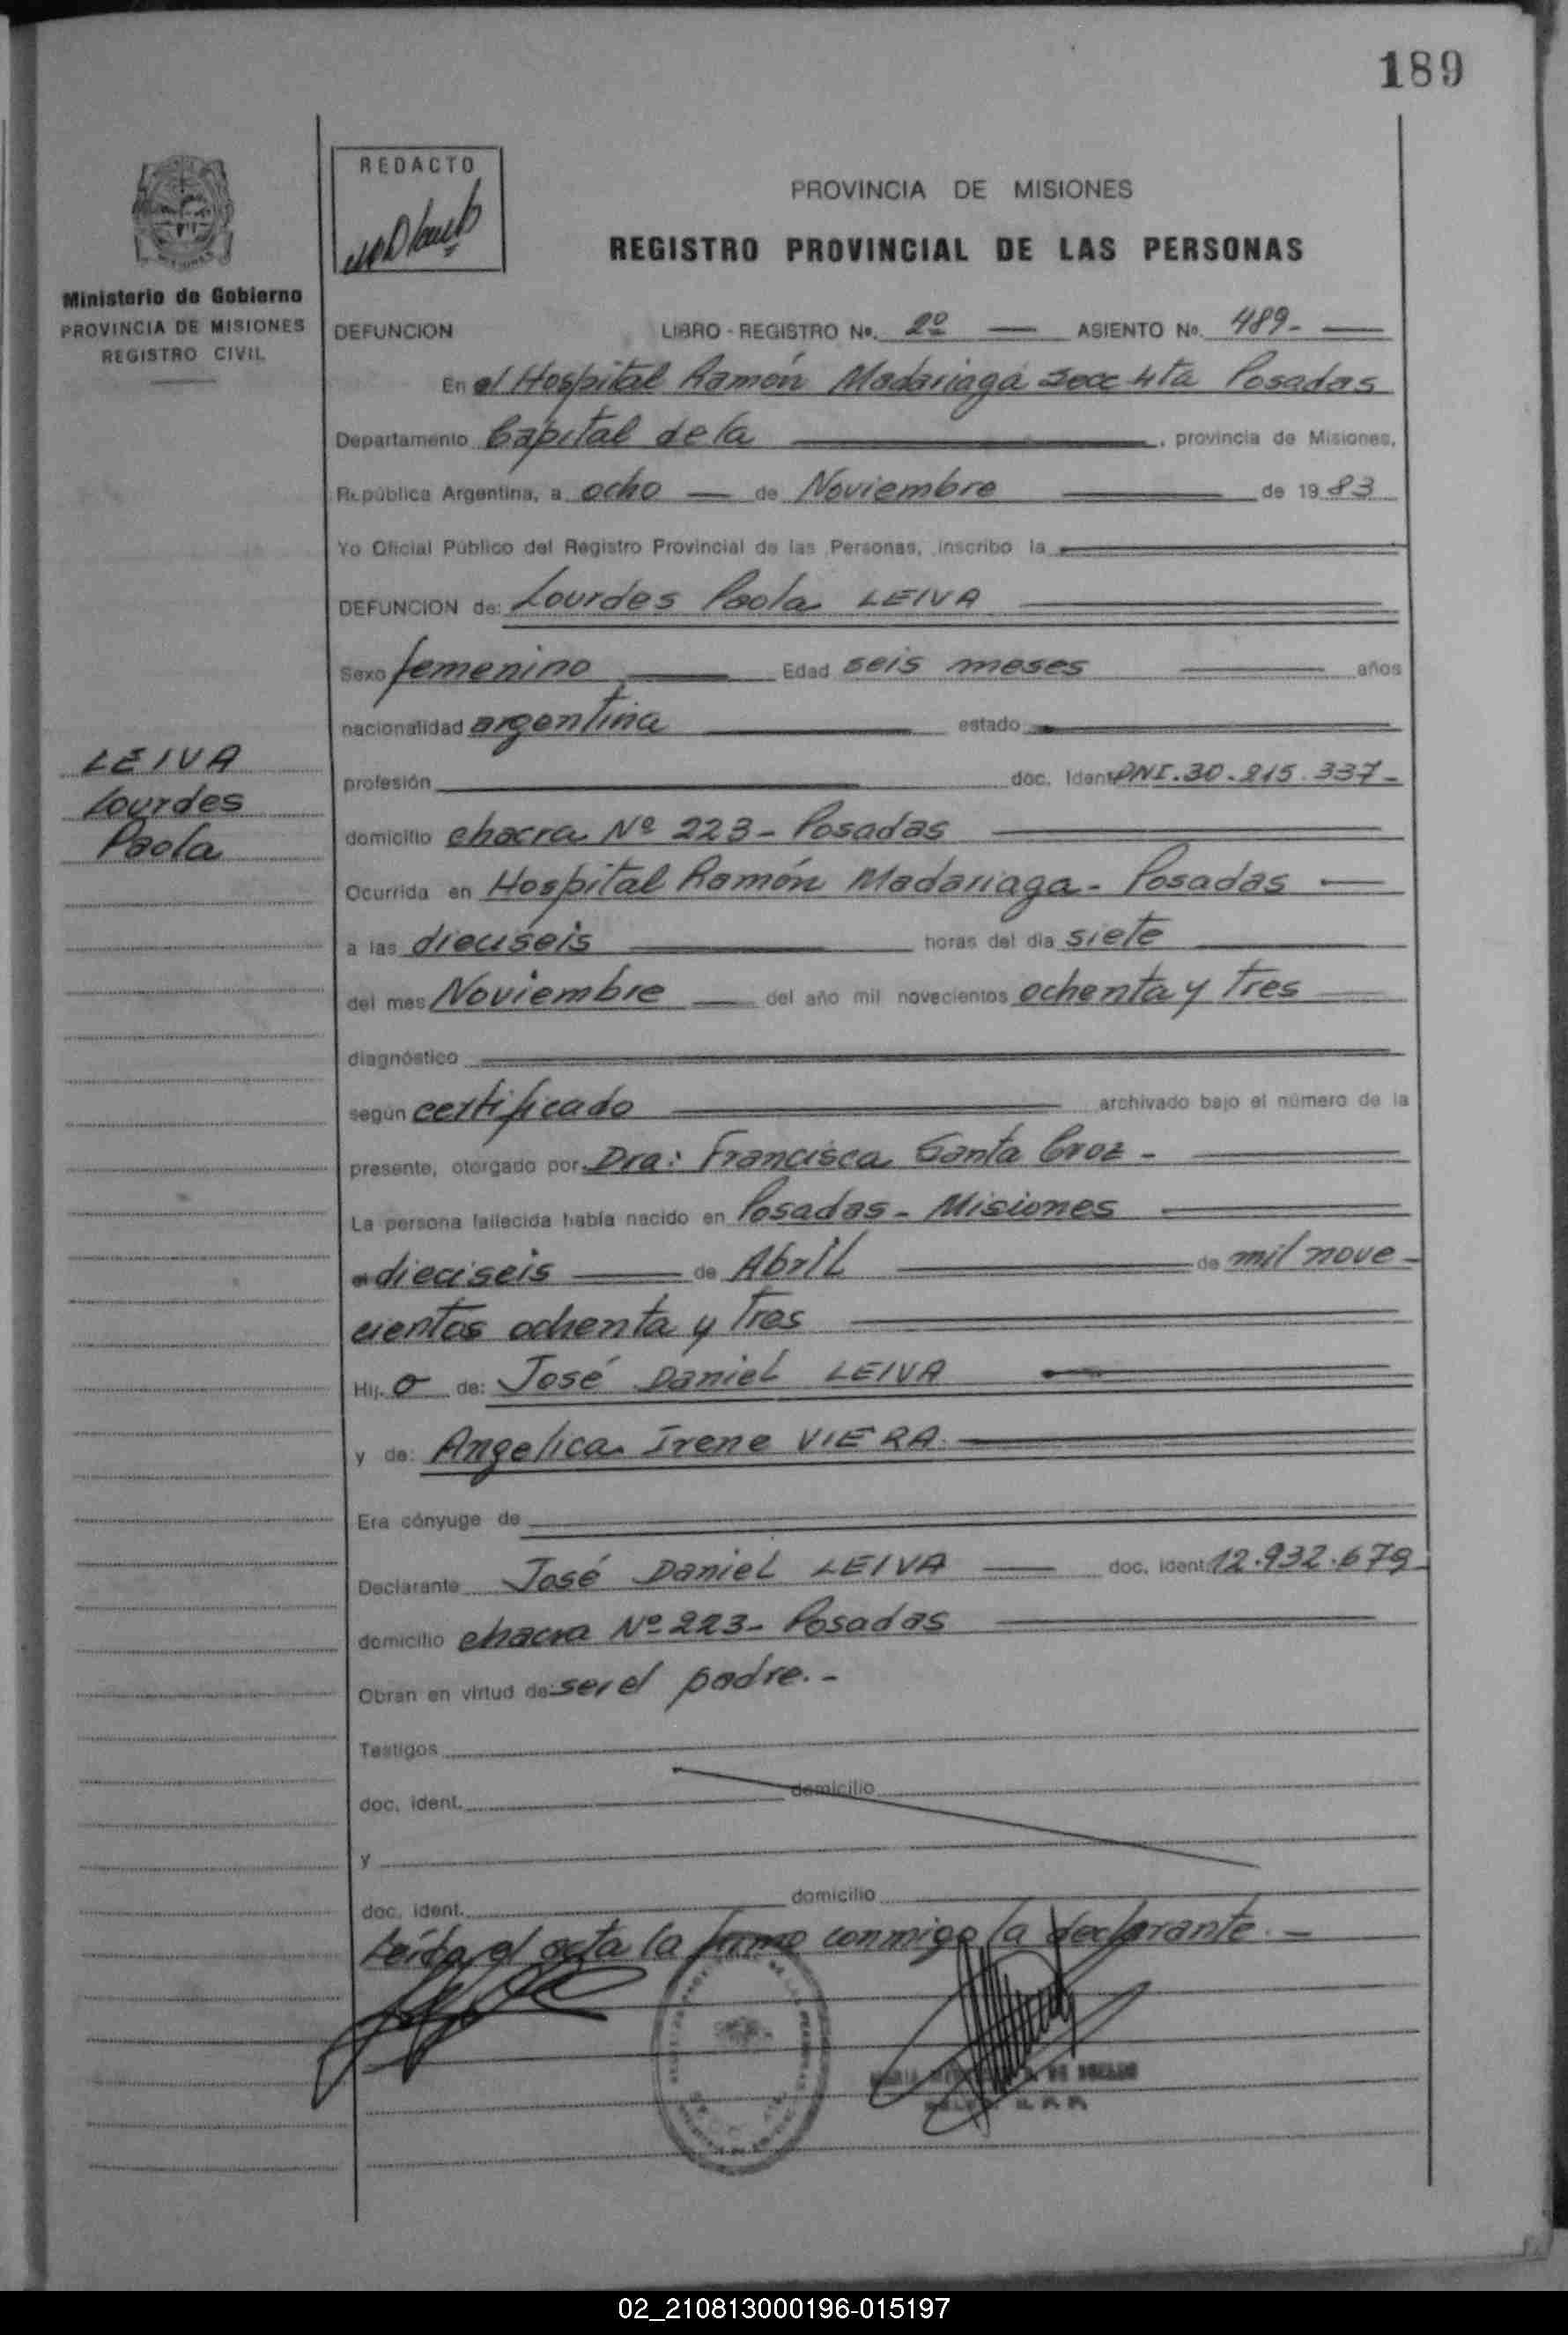 189
REDACTO
PROVINCIA DE MISIONES
REGISTRO PROVINCIAL DE LAS PERSONAS
Ministerio de Gobierno
PROVINCIA DE MISIONES
REGISTRO CIVIL
DEFUNCION LIBRO - REGISTRO No. 2º ASIENTO No. 489-
En el Hospital Ramón Madariaga Secc 4ta Posadas
Departamento Capital de la , provincia de Misiones,
República Argentina, a ocho de Noviembre de 1983
Yo Oficial Público del Registro Provincial de las Personas, inscribo la
DEFUNCION de: Lourdes Paola LEIVA
Sexo femenino Edad seis meses años
nacionalidad argentina estado
LEIVA
Lourdes
Paola
profesión doc. Ident DNI. 30.215.337-
domicilio chacra Nº 223- Posadas
Ocurrida en Hospital Ramón Madariaga- Posadas
a las dieciseis horas del día siete
del mes Noviembre del año mil novecientos ochenta y Tres
diagnóstico
según certificado archivado bajo el número de la
presente, otorgado por Dra: Francisca Santa Cruz -
La persona fallecida había nacido en Posadas- Misiones
el dieciseis de Abril de mil nove-
cientos ochenta y Tres
Hij. o de: José Daniel LEIVA
y de: Angelica Irene VIERA.
Era cónyuge de
Declarante José Daniel LEIVA doc. ident. 12.932.679-
domicilio chacra Nº 223- Posadas
Obran en virtud de: ser el padre.-
Testigos
doc. ident. domicilio
y
doc. ident. domicilio
Leída el acta la firma conmigo la declarante.-
02_210813000196-015197